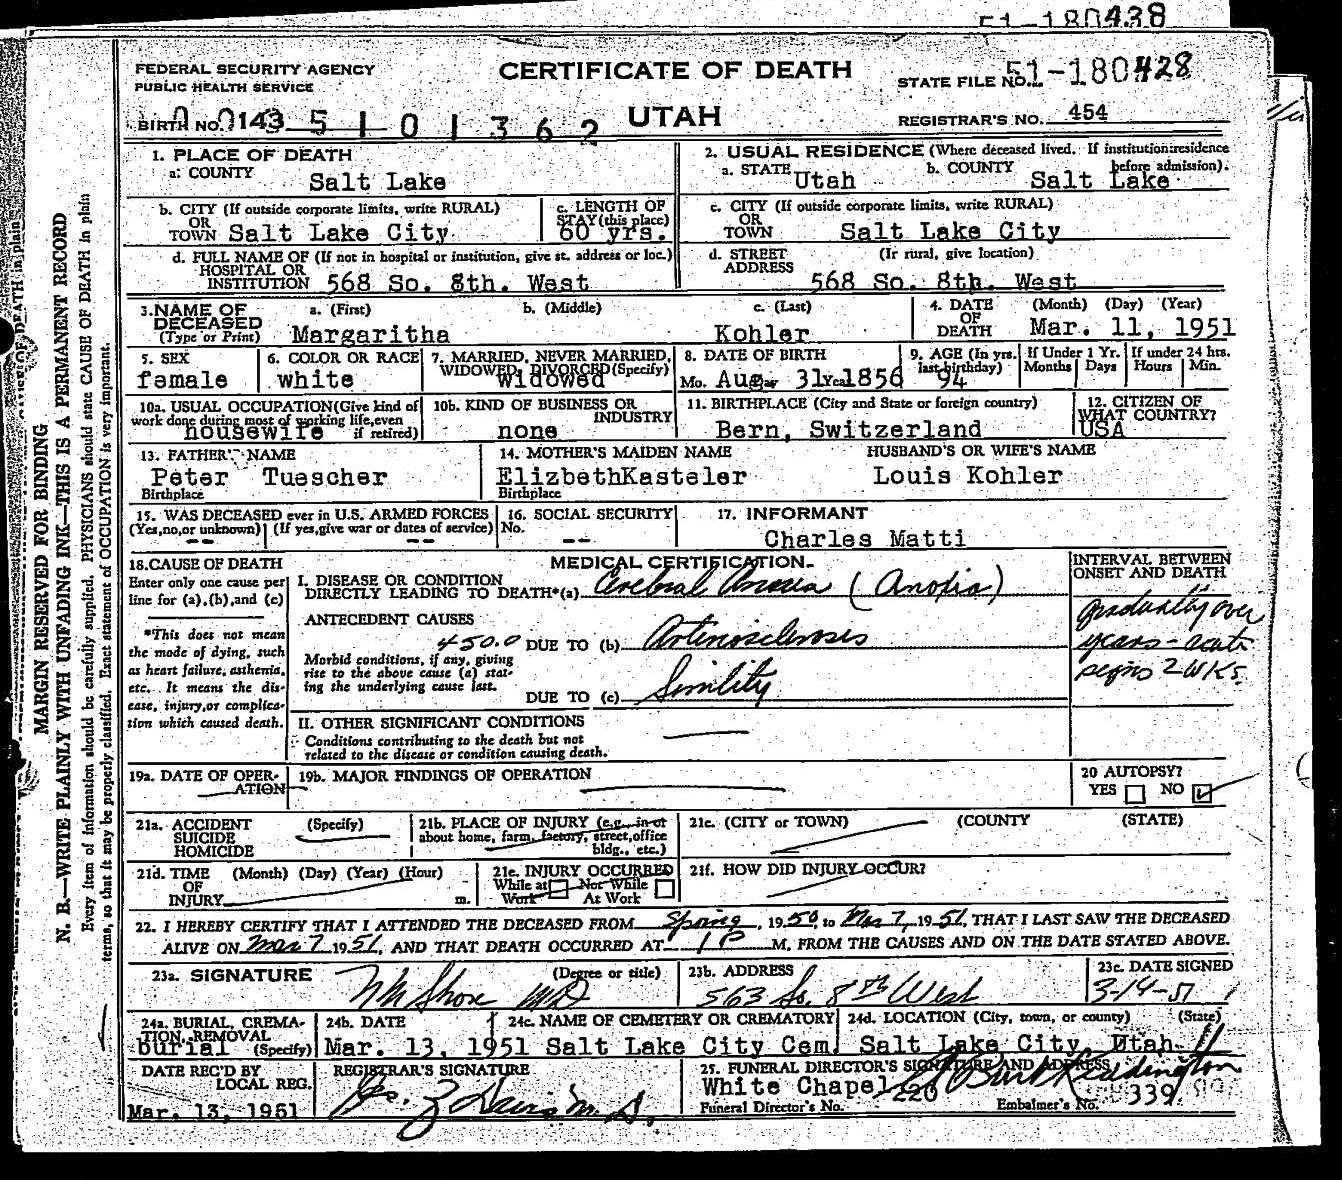 51-180438
FEDERAL SECURITY AGENCY
PUBLIC HEALTH SERVICE
CERTIFICATE OF DEATH
STATE FILE NO. 51-180428
BIRTH NO. 0143 5 1 0 1 3 6 2
UTAH
REGISTRAR'S NO. 454
MARGIN RESERVED FOR BINDING
N. B.—WRITE PLAINLY WITH UNFADING INK—THIS IS A PERMANENT RECORD
Every item of information should be carefully supplied. PHYSICIANS should state CAUSE OF DEATH in plain
terms, so that it may be properly classified. Exact statement of OCCUPATION is very important.
1. PLACE OF DEATH
a. COUNTY
Salt Lake
2. USUAL RESIDENCE (Where deceased lived. If institution: residence before admission).
a. STATE Utah b. COUNTY Salt Lake
b. CITY (If outside corporate limits, write RURAL)
OR
TOWN Salt Lake City
c. LENGTH OF
STAY (this place)
60 yrs.
c. CITY (If outside corporate limits, write RURAL)
OR
TOWN Salt Lake City
d. FULL NAME OF (If not in hospital or institution, give st. address or loc.)
HOSPITAL OR
INSTITUTION 568 So. 8th. West
d. STREET (If rural, give location)
ADDRESS
568 So. 8th. West
3. NAME OF DECEASED (Type or Print)
a. (First) b. (Middle) c. (Last)
Margaritha Kohler
4. DATE OF DEATH (Month) (Day) (Year)
Mar. 11, 1951
5. SEX
female
6. COLOR OR RACE
white
7. MARRIED, NEVER MARRIED,
WIDOWED, DIVORCED (Specify)
widowed
8. DATE OF BIRTH
Mo. Aug. Day 31 Year 1856
9. AGE (In yrs. last birthday)
94
If Under 1 Yr. Months Days
If under 24 hrs. Hours Min.
10a. USUAL OCCUPATION (Give kind of
work done during most of working life, even
if retired)
housewife
10b. KIND OF BUSINESS OR
INDUSTRY
none
11. BIRTHPLACE (City and State or foreign country)
Bern, Switzerland
12. CITIZEN OF
WHAT COUNTRY?
USA
13. FATHER'S NAME
Peter Tuescher
Birthplace
14. MOTHER'S MAIDEN NAME
ElizbethKasteler
Birthplace
HUSBAND'S OR WIFE'S NAME
Louis Kohler
15. WAS DECEASED ever in U.S. ARMED FORCES
(Yes, no, or unknown) (If yes, give war or dates of service)
-- --
16. SOCIAL SECURITY
No.
--
17. INFORMANT
Charles Matti
18. CAUSE OF DEATH
Enter only one cause per
line for (a), (b), and (c)
*This does not mean
the mode of dying, such
as heart failure, asthenia,
etc. It means the dis-
ease, injury, or complica-
tion which caused death.
MEDICAL CERTIFICATION
I. DISEASE OR CONDITION
DIRECTLY LEADING TO DEATH*(a) Cerebral Anoxia (Anoxia)
ANTECEDENT CAUSES
450.0 DUE TO (b) Arteriosclerosis
Morbid conditions, if any, giving
rise to the above cause (a) stat-
ing the underlying cause last.
DUE TO (c) Sinility
INTERVAL BETWEEN
ONSET AND DEATH
gradually over
years - acute
signs 2 wks.
II. OTHER SIGNIFICANT CONDITIONS
Conditions contributing to the death but not
related to the disease or condition causing death.
19a. DATE OF OPER-
ATION
19b. MAJOR FINDINGS OF OPERATION
20 AUTOPSY?
YES NO
21a. ACCIDENT (Specify)
SUICIDE
HOMICIDE
21b. PLACE OF INJURY (e.g., in or
about home, farm, factory, street, office
bldg., etc.)
21c. (CITY or TOWN) (COUNTY) (STATE)
21d. TIME (Month) (Day) (Year) (Hour)
OF
INJURY m.
21e. INJURY OCCURRED
While at Work Not While At Work
21f. HOW DID INJURY OCCUR?
22. I HEREBY CERTIFY THAT I ATTENDED THE DECEASED FROM Spring, 1950, to Mar 7, 1951, THAT I LAST SAW THE DECEASED
ALIVE ON Mar 7 1951, AND THAT DEATH OCCURRED AT 1 P M, FROM THE CAUSES AND ON THE DATE STATED ABOVE.
23a. SIGNATURE (Degree or title)
Shore MD
23b. ADDRESS
563 So. 8th West
23c. DATE SIGNED
3-14-51
24a. BURIAL, CREMA-
TION, REMOVAL
(Specify)
burial
24b. DATE
Mar. 13, 1951
24c. NAME OF CEMETERY OR CREMATORY
Salt Lake City Cem.
24d. LOCATION (City, town, or county) (State)
Salt Lake City, Utah
DATE REC'D BY
LOCAL REG.
Mar. 13, 1951
REGISTRAR'S SIGNATURE
25. FUNERAL DIRECTOR'S SIGNATURE AND ADDRESS
White Chapel
Funeral Director's No. 220
Embalmer's No. 339